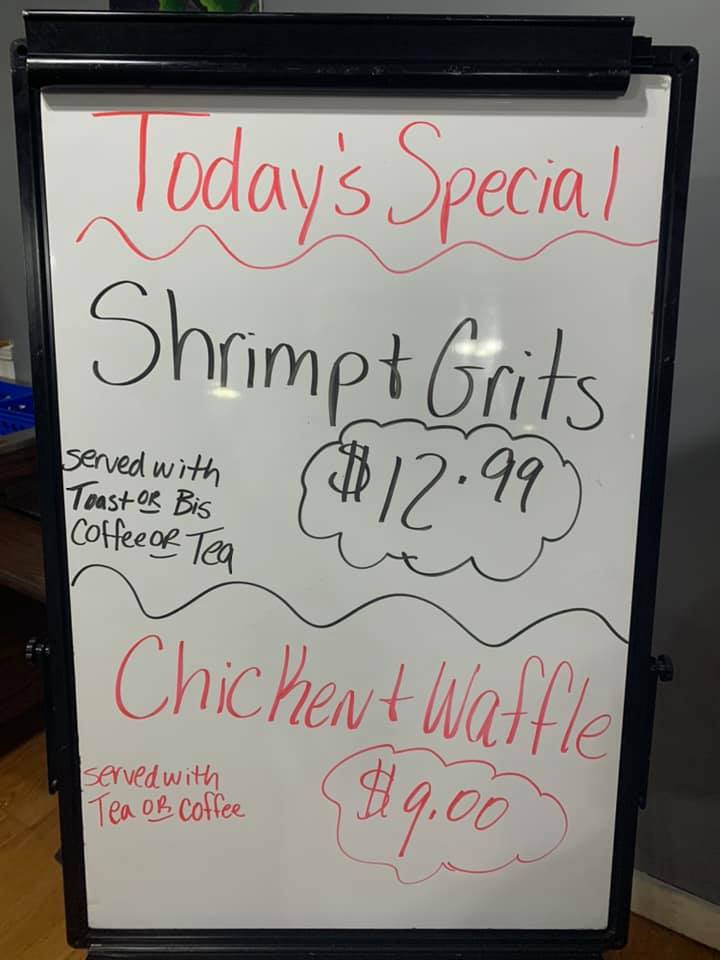 Today's Special
Shrimp + Grits
served with
Toast OR Bis
Coffee OR Tea
$12.99
Chicken + Waffle
served with
Tea OR Coffee
$9.00